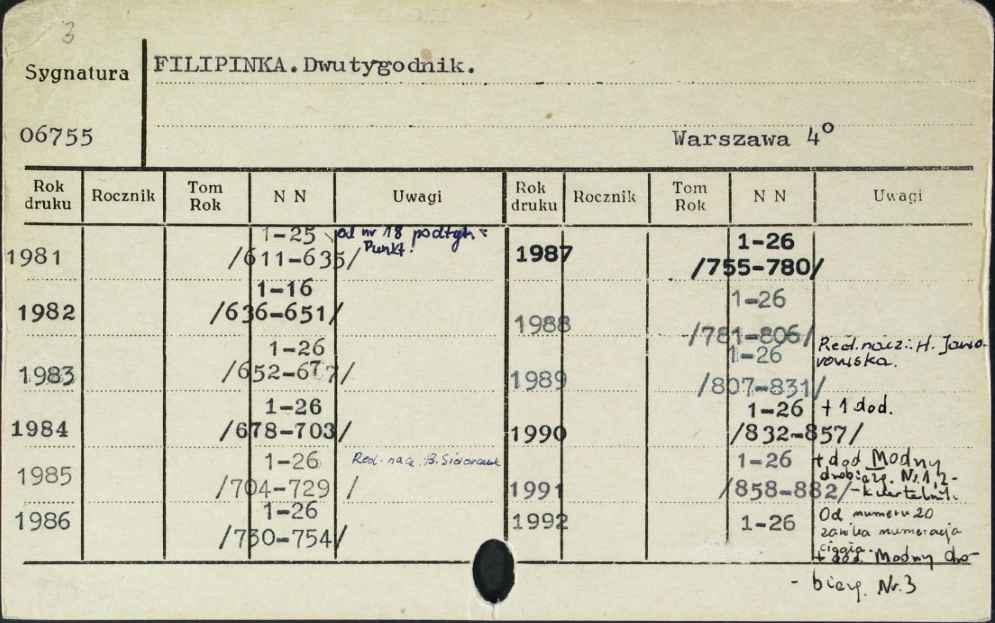 3
Sygnatura
FILIPINKA. Dwutygodnik.
06755
Warszawa 4°
Rok druku Rocznik Tom Rok N N Uwagi Rok druku Rocznik Tom Rok N N Uwagi
1981 1-25 od nr 18 podtyt:
/611-635/ Punkt.
1982 1-16
/636-651/
1983 1-26
/652-677/
1984 1-26
/678-703/
1985 1-26 Red. nacz.: B.
/704-729 /
1986 1-26
/730-754/
1987 1-26
/755-780/
1988 1-26
/781-806/
1989 1-26 Red. nacz.: H. Jawo-
/807-831/ rowska.
1990 1-26 + 1 dod.
/832-857/
1991 1-26 + dod Modny
/858-882/ drobiazg. Nr. 1,2-
-kwartalnik.
1992 1-26 Od numeru 20
zanika numeracja
ciągła.
+ dod. Modny dro-
- biazg. Nr. 3